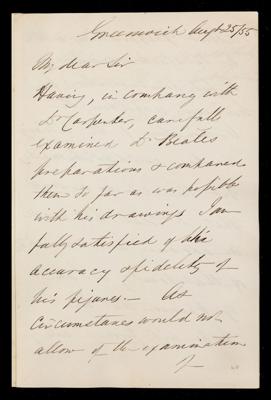 Greenwich Augt 25/55
My dear Sir
Having, in company with
Dr Carpenter, carefully
examined Dr Beale's
preparations & compared
them so far as was possible
with his drawings I am
fully satisfied of the
accuracy & fidelity of
his figures.— As
circumstances would not
allow of the examination
of